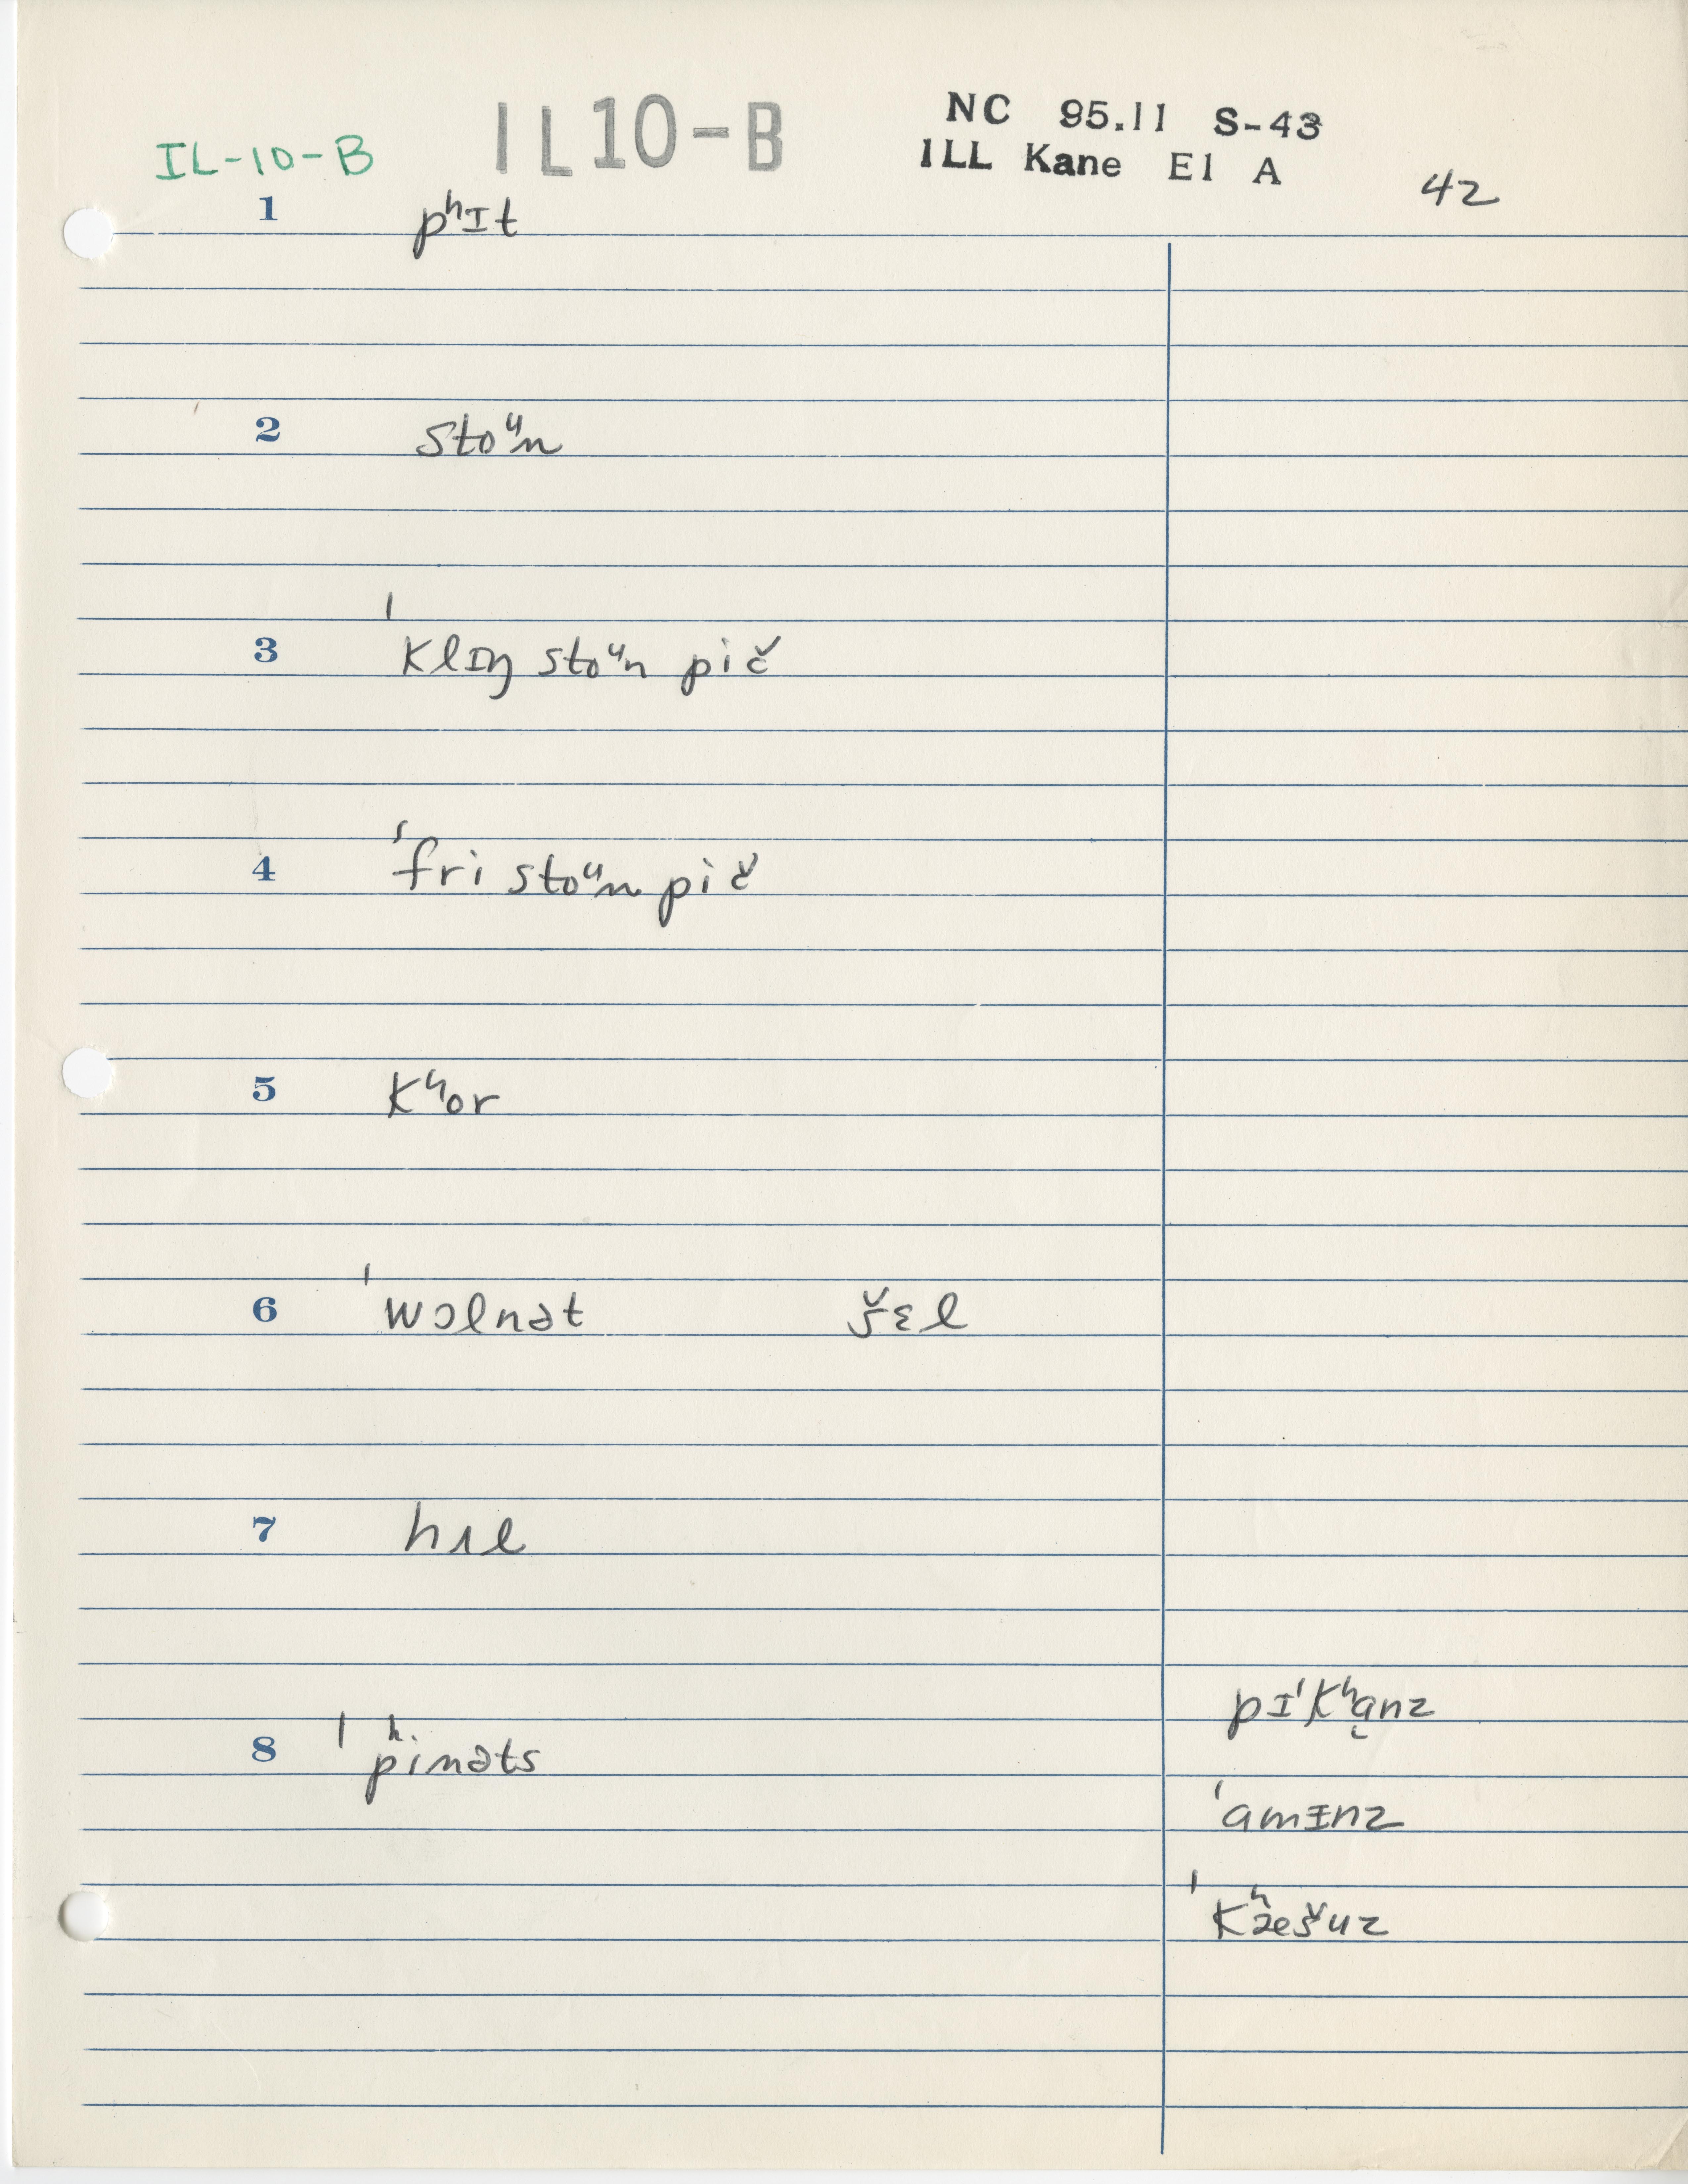 IL-10-B IL10-B NC 95.11 S-43
ILL Kane El A 42
1 pʰɪt
2 stoᵘn
3 ˈklɪŋ stoᵘn pič
4 ˈfri stoᵘn pič
5 kʰor
6 ˈwɔlnət šɛl
7 hʌl
8 ˈpʰinəts
pɪˈkʰɑ̨nz
ˈɑmɪnz
ˈkʰæšuz